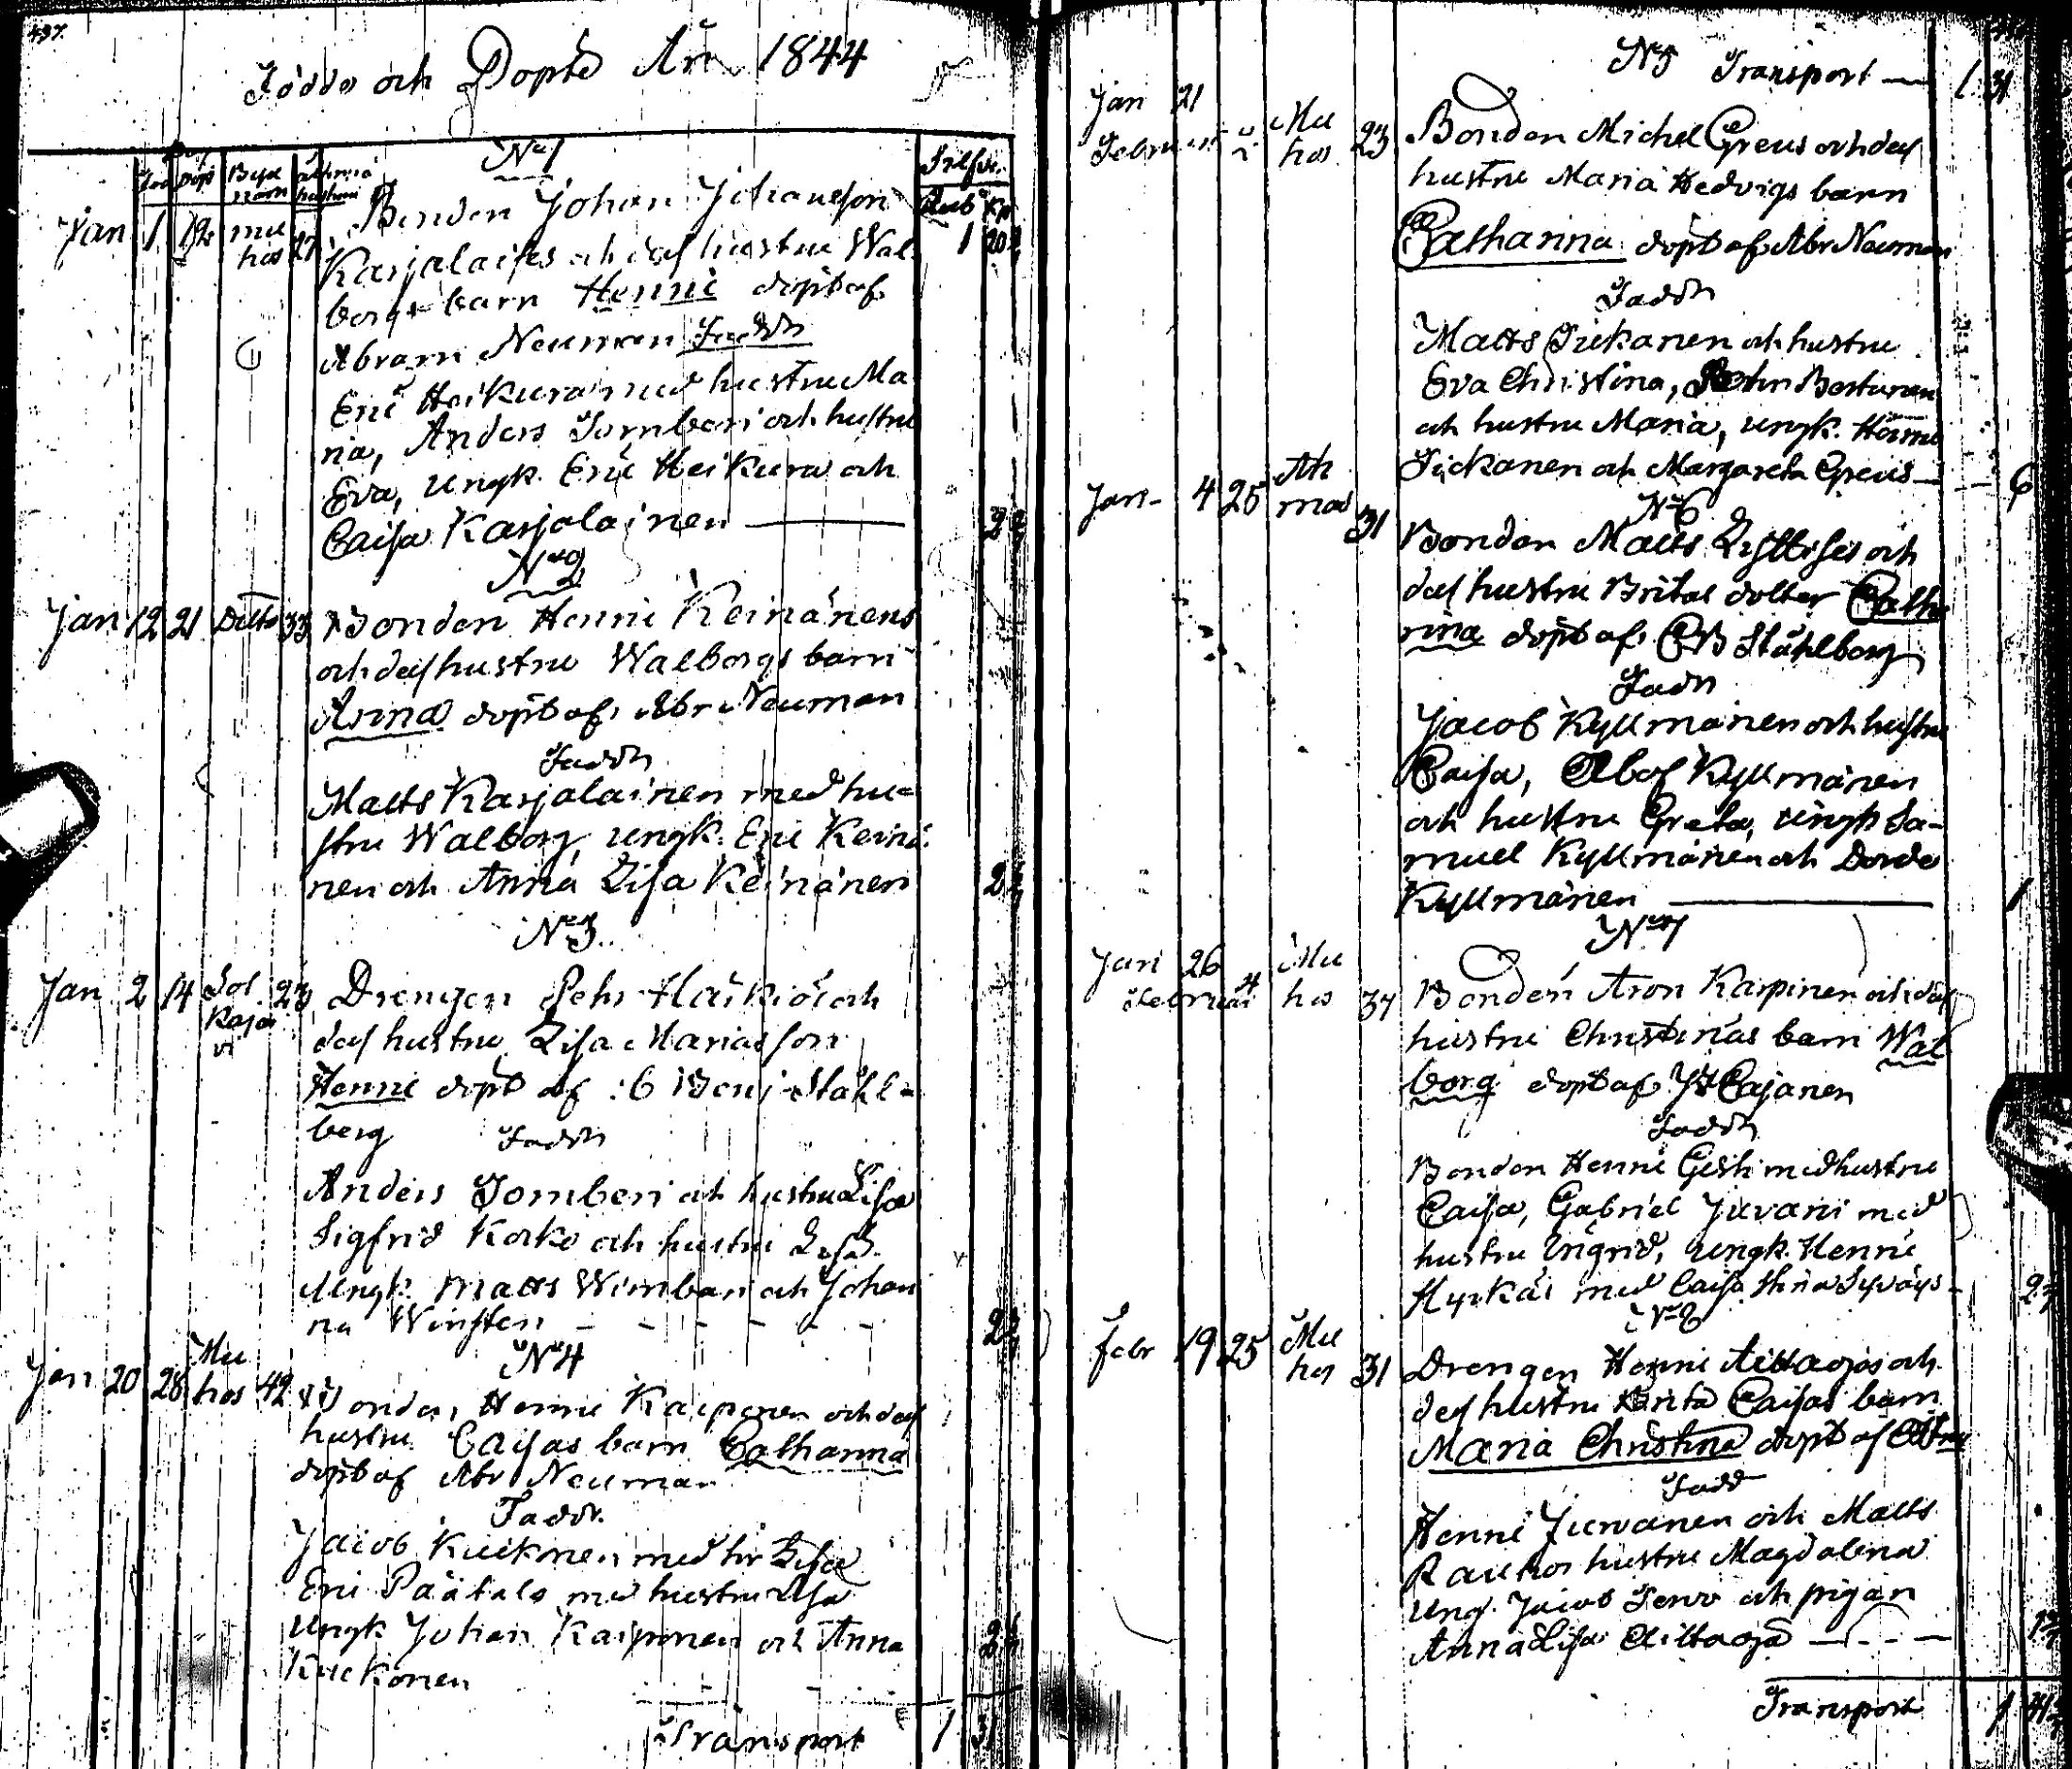 437.
Födde och Döpte År 1844
Föd Döpt Byar namn Silfver.
Rub Kp
No 1
Jan 1 Mu hos 27 Bonden Johan Johansson
Karjalaises och dess hustru Wal
borgs barn Henric döpt af 1 20
Abram Neuman Faddr
Eric Heikura med hustru Ma
ria, Anders Tornberi och hustru
Eva, Ungk. Eric Heikura och
Caisa Karjalainen
No 2
Jan 12 21 Ditto 33 Bonden Henric Keinänens
och dess hustru Walborgs barn
Anna döpt af Abr Neuman
Faddr
Matts Karjalainen med hu-
stru Walborg, ungk. Eric Keinä
nen och Anna Lisa Keinänen
No 3.
Jan 2 14 Sot Kaja vi 23 Drengen Pehr Härkiö och
dess hustru Lisa Marias son
Henric döpt af C Benj Ståhl-
berg Faddr
Anders Tornberi och hustru Lisa
Sigfrid Korko och hustru Lisa
Ungk. Matts Wimbari och Johan
na Winsten
No 4
Jan 20 28 Mu hos 42 Bonden Henric Karpinen och dess
hustru Caisas barn Catharina
döpt af Abr Neuman
Faddr.
Jacob Kuikonen med hr Lisa
Eric Päätalo med hustru Lisa
Ungk Johan Karpinen och Anna
Kuckonen
Transport 1 31
No 5 Transport 1 31
Jan 21
Februari Mu hos 23 Bonden Michel Greus och dess
hustru Maria Hedvigs barn
Catharina döpt af Abr Neuman
Faddr
Matts Tickanen och hustru
Eva Christina, Petter
och hustru Maria, ungk. Henric
Tickanen och Margareta Greus 6
No 6
Jan 4 25 Ah mas 31 Bonden Matts och
dess hustru Britas dotter Catha
rina döpt af CB Ståhlberg
Faddr
Jacob Kyllmänen och hustru
Caisa, Olof Kyllmänen
och hustru Greta, ungk Sa-
muel Kyllmänen och Dorde
Kyllmänen 1
No 7
Jan 26
Februari 4 Mu hos 37 Bonden Aron Karpinen och dess
hustru Christinas barn Wal
borg döpt af Cajanen
Faddr
Bonden Henric Gesti med hustru
Caisa, Gabriel Juvani med
hustru Ingrid, ungk. Henric
Hyrkäs med Caisa Stina
No 8
Febr 19 25 Mu hos 31 Drengen Henric Aittaojas och
dess hustru Brita Caisas barn
Maria Christina döpt af
Fadd
Henric Juvanen och Matts
Raukos hustru Magdalena
Ung. Jacob Tervo och pigan
Anna Lisa Aittaoja
Transport 1